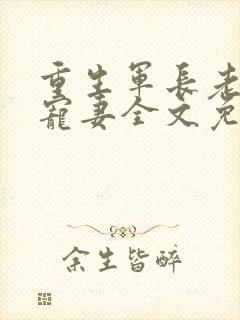 重生军长老
宠妻全文免
余生皆醉